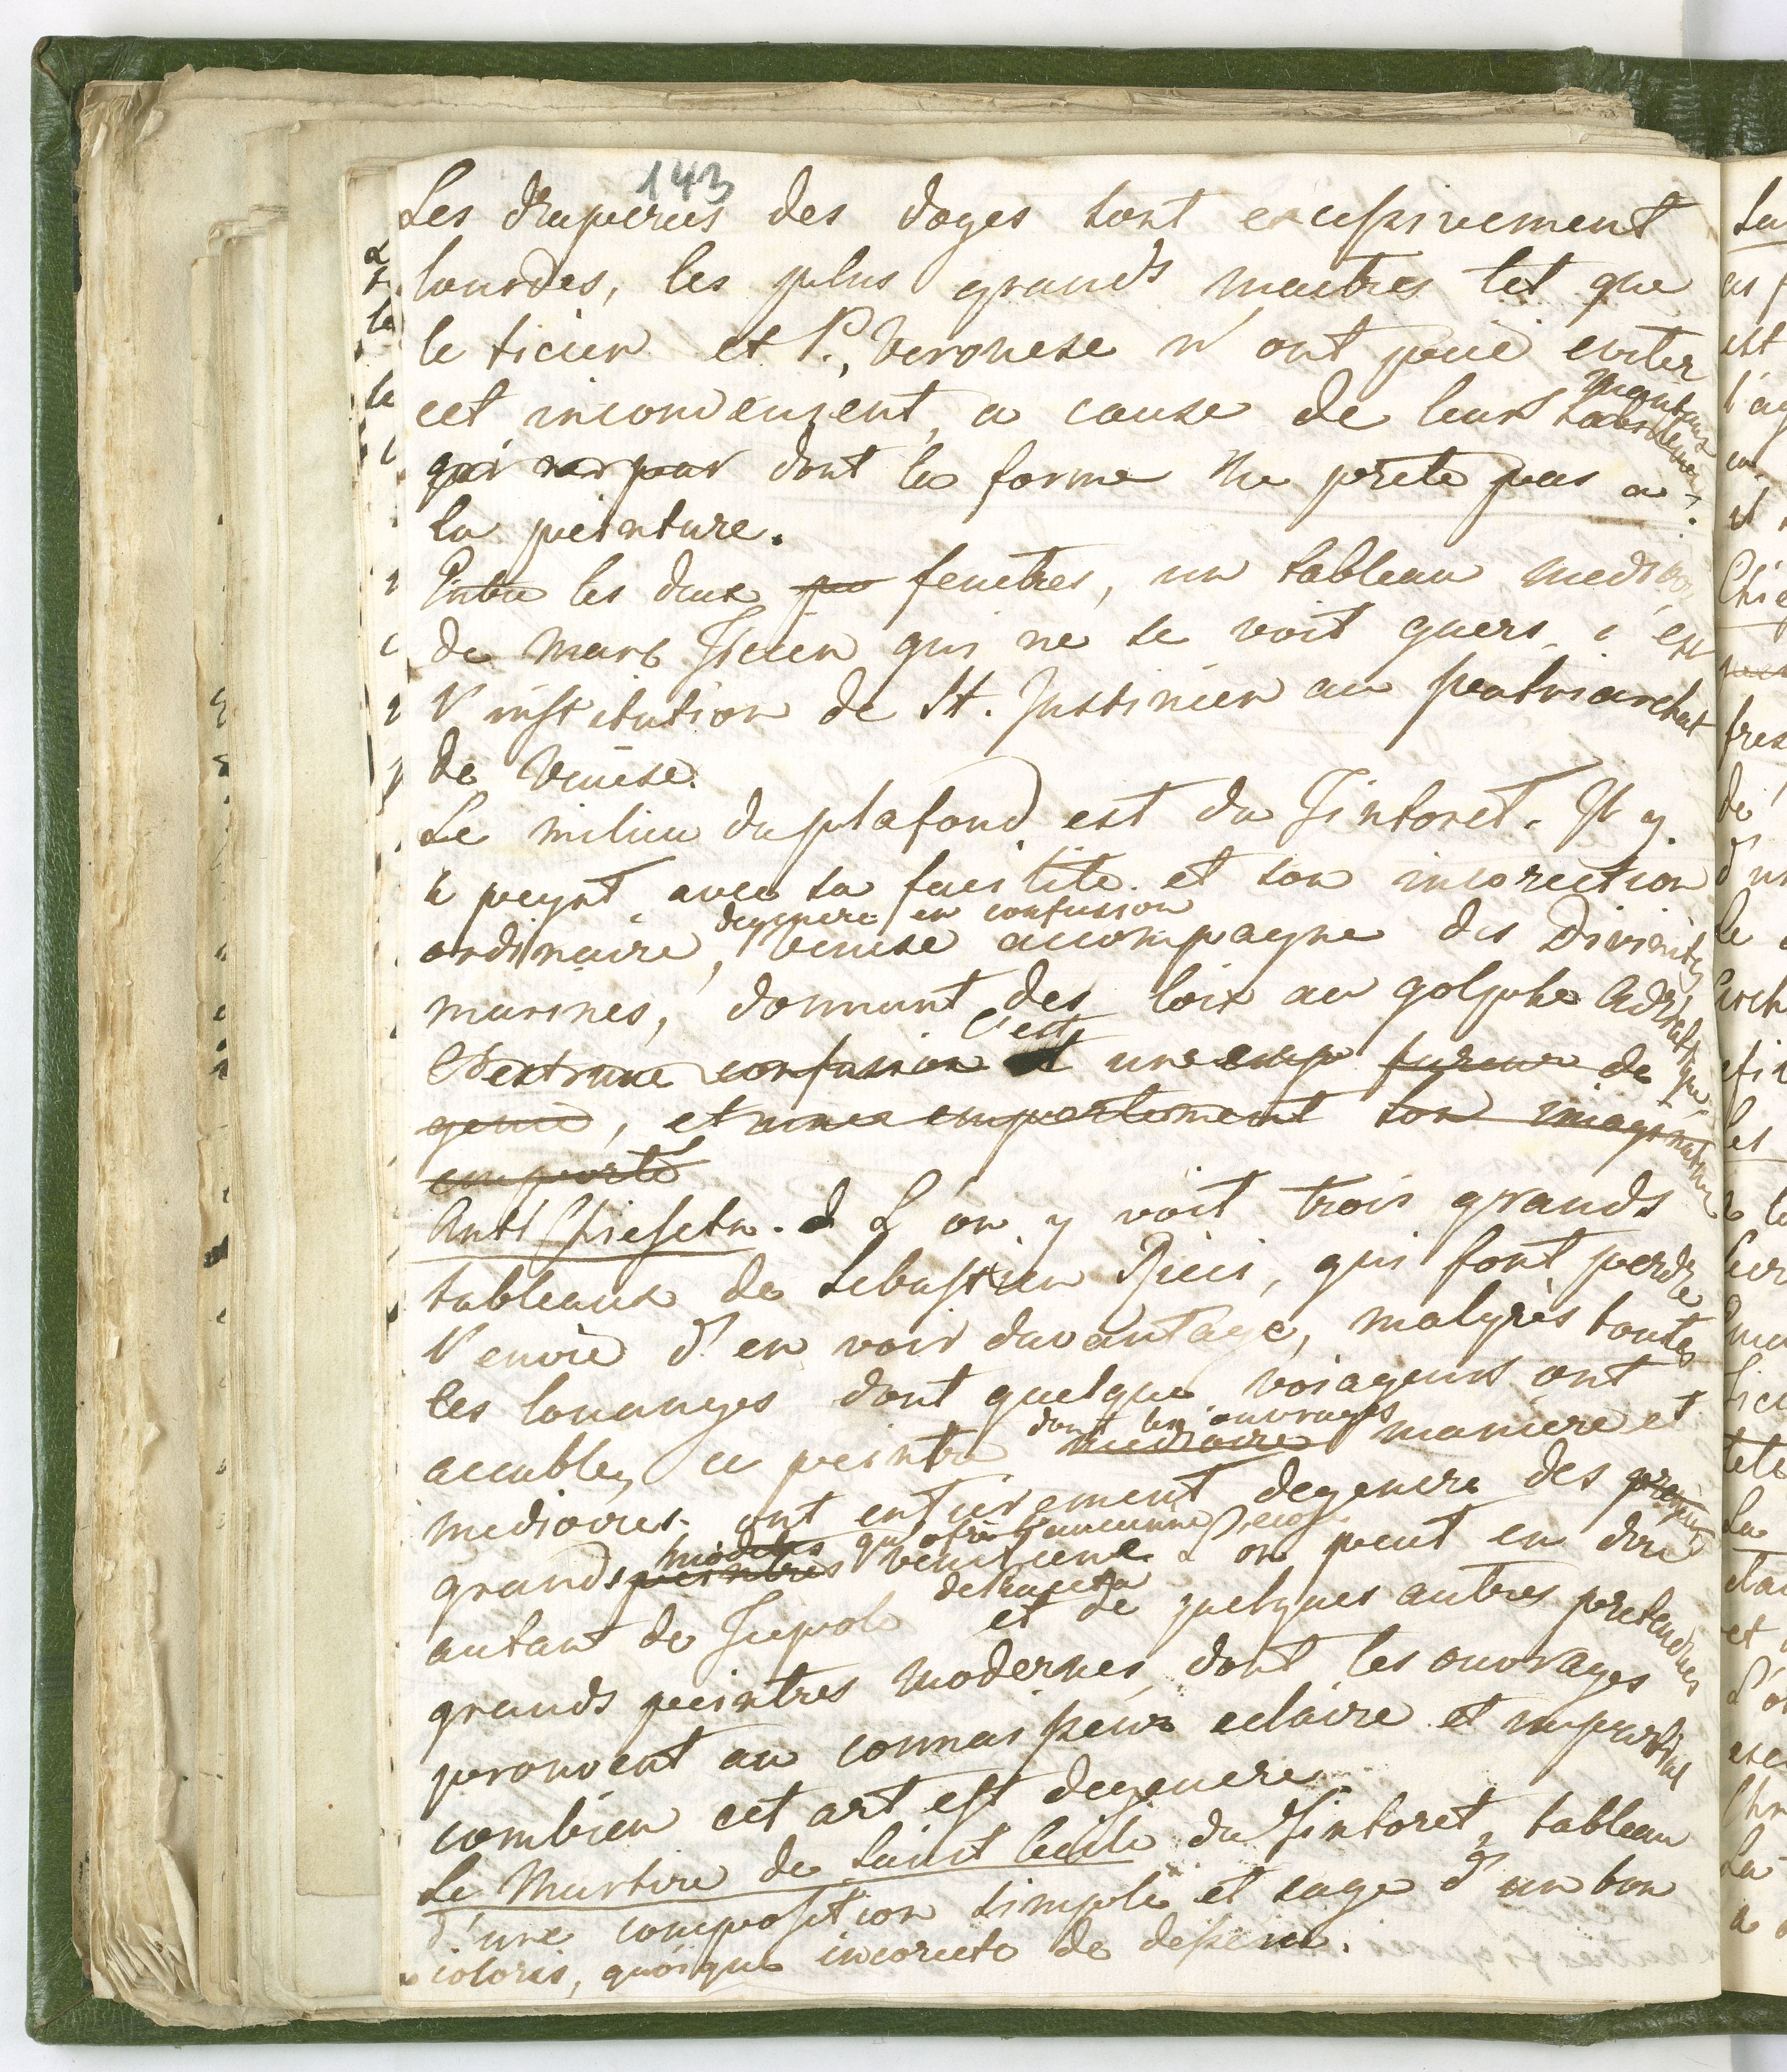 143
Les draperies des doges sont excessivement
lourdes, les plus grands maitres tel que
le ticien et P. Veronese n'ont pue eviter
cet inconvenient, a cause de leurs manteaux
dont la forme ne prete pas a
la peinture.
Entre les deux fenetres, un tableau mediocre
de Marc Ticien qui ne se voit guers, c'est
l'institution de St. Justinien au patriarchat
de Venise.
Le milieu du plafond est du Tintoret. Il y
a peint avec sa facilité et son incorection
degenere en confusion
ordinaire, Venise accompagne des Divinites
marines, donnant des loix au golphe Adriatique.
c'est
L'extreme confusion une fureur de
genie, et une emportement son imagination
emporté
Anti Chiesetta. L'on y voit trois grands
tableaux de Sebastien Ricci, qui font perdre
l'envie d'en voir davantage, malgrès toutes
les louanges dont quelque voiageurs ont
dont les ouvrages
accablez ce peintre mediocre maniere et
mediocres ont entierement degenere des
modeles qu'ofre l'ancienne Ecole
grands peintres venitiene L'on peut en dire
autant de Tiepolo et de quelques autres pretendues
grands peintres modernes, dont les ouvrages
prouvent au connaisseur eclaire et impartial
combien cet art est degenere.
Le Martire de Saint Cecile du Tintoret, tableau
d'une composition simple et sage d'un bon
coloris, quoique incorecte de dessein.